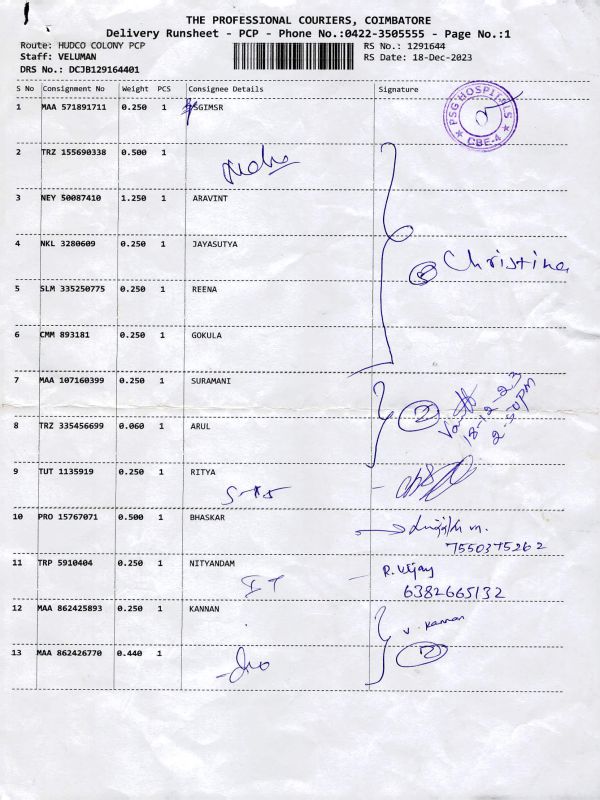 THE PROFESSIONAL COURIERS, COIMBATORE
Delivery Runsheet - PCP - Phone No.:0422-3505555 - Page No.:1
Route: HUDCO COLONY PCP
Staff: VELUMAN
DRS No.: DCJB129164401
RS No.: 1291644
RS Date: 18-Dec-2023
S No Consignment No Weight PCS Consignee Details Signature
1 MAA 571891711 0.250 1 PSGIMSR
PSG HOSPITALS
CBE-4
2 TRZ 155690338 0.500 1
3 NEY 50087410 1.250 1 ARAVINT
4 NKL 3280609 0.250 1 JAYASUTYA
Christina
5 SLM 335250775 0.250 1 REENA
6 CMM 893181 0.250 1 GOKULA
7 MAA 107160399 0.250 1 SURAMANI
18-12-23
2.50PM
8 TRZ 335456699 0.060 1 ARUL
2
9 TUT 1135919 0.250 1 RITYA
10 PRO 15767071 0.500 1 BHASKAR
7550375262
11 TRP 5910404 0.250 1 NITYANDAM
R. Vijay
6382665132
12 MAA 862425893 0.250 1 KANNAN
V. Kannan
13 MAA 862426770 0.440 1
2